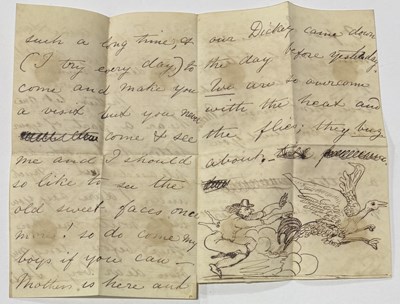 such a long time, &
(I try every day) to
come and make you
a visit but you
come & see
me and I should
so like to see the
old sweet faces once
more! so do come my
boys if you can —
Mothers is here and
our Dickey came down
the day before yesterday.
We are so overcome
with the heat and
the flies; they buzz
about.